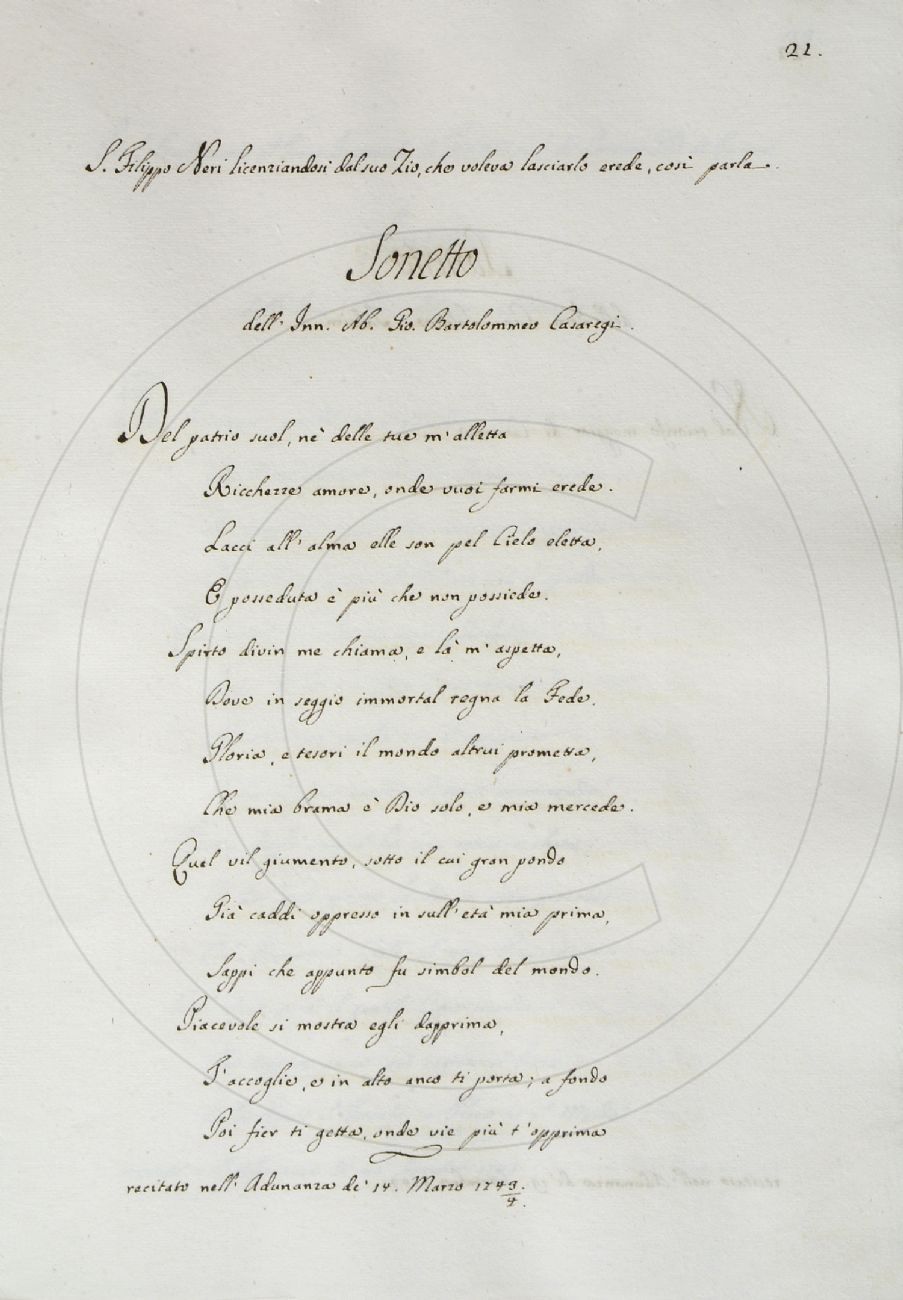 21.
S. Filippo Neri licenziandosi dal suo Zio, che voleva lasciarlo erede, così parla.
Sonetto
dell' Inn. Ab. Gio. Bartolommeo Casaregi.
Del patrio suol, nè delle tue m'alletta
Ricchezze amore, onde vuoi farmi erede.
Lacci all'alma elle son pel Cielo eletta,
E posseduta è più che non possiede.
Spirto divin me chiama, e là m'aspetta,
Dove in seggio immortal regna la Fede.
Gloria, e tesori il mondo altrui prometta,
Che mia brama è Dio solo, e mia mercede.
Quel vil giumento, sotto il cui gran pondo
Già caddi oppresso in sull'età mia prima,
Sappi che appunto fu simbol del mondo.
Piacevole si mostra egli dapprima,
T'accoglie, e in alto anco ti porta; a fondo
Poi fier ti getta, onde vie più t'opprima
recitato nell'Adunanza de' 14. Marzo 1743/4.